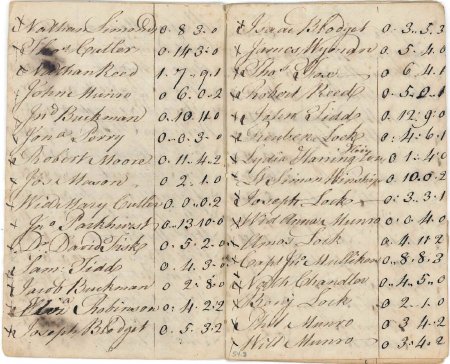 x Nathan Simonds 0. 8. 3. 0
x Thos Cutler 0. 14. 3. 0
x Nathan Reed 1. 7. 9. 1
x John Munro 0. 6. 0. 2
x Jno Buckman 0. 10. 11. 0
x Jona Perry 0. 0. 3. 0
x Robert Moore 0. 11. 4. 2
x Jos Mason 0 2. 1. 0
x Wid Mary Cutler 0. 0. 0. 2
x Jno Parkhurst 0. 13. 10. 0
x Dr David Fisk 0. 5. 2. 0
x Sam: Tidd 0. 4. 3. 0
x Jacob Buckman 0 2: 8. 0
x Robinson 0: 4: 2. 2
x Joseph Blodget 0. 5. 3. 2
x Isaac Blodget 0. 3. 5. 3
x James Wyman 0. 5. 4. 0
x Thos Fox 0 6. 4. 1
x Robert Reed 0. 5. 0. 1
x Tidd 0. 12. 9. 0
x Reuben Lock 0: 4: 6. 1
x Lydia Harrington 0 1: 4. 0
x Winship 0. 10. 0. 2
x Joseph Lock 0: 3. 3. 1
x Wid Anna Munro 0. 0. 4. 0
x Amos Lock 0. 4. 11. 2
x Capt Jno Mulliken 0. 8. 8. 3
x Nath Chandler 0. 4. 5. 0
x Lock 0. 2. 1. 0
x Phil Munro 0 3 4. 2
x Will Munro 0. 3. 4. 2